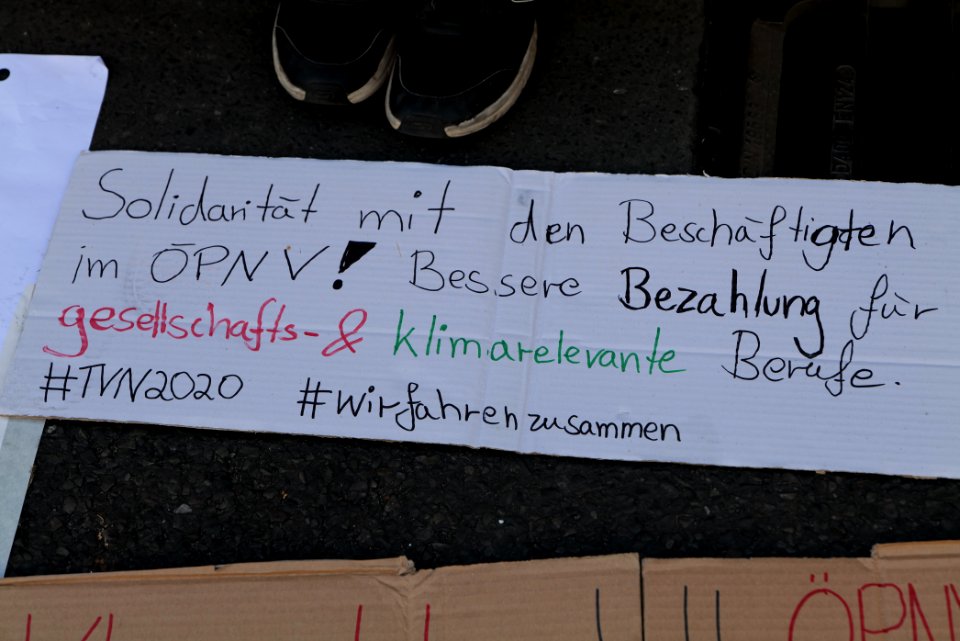 Solidarität mit den Beschäftigten
im ÖPNV! Bessere Bezahlung für
gesellschafts- & klimarelevante Berufe.
#TVN2020 #wirfahrenzusammen
ÖPNV